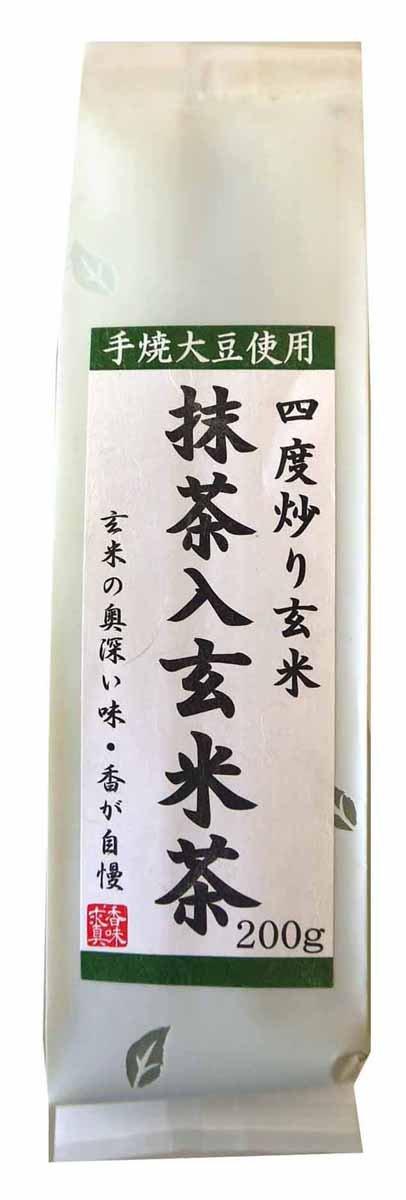 手焼大豆使用
四度炒り玄米
抹茶入玄米茶
玄米の奥深い味・香が自慢
香味
求真
200g